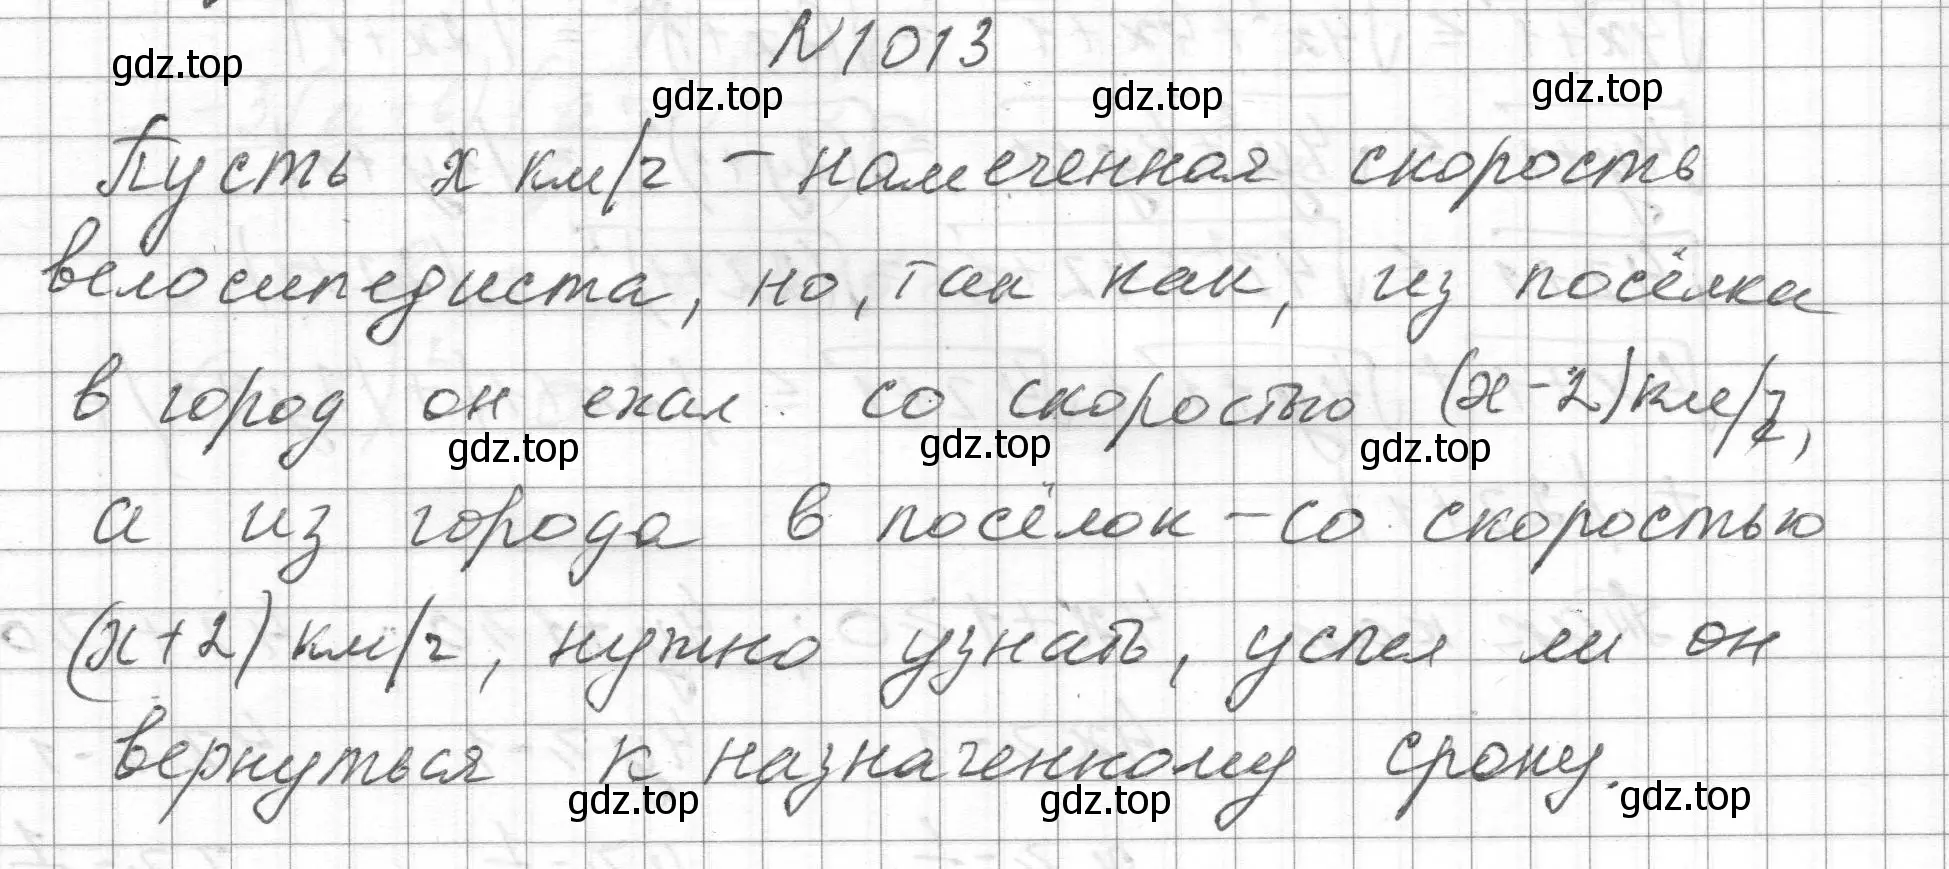 N1013
gdz.top gdz.top gdz.top gdz.top
Пусть x км/ч – намеченная скорость
велосипедиста, но, так как, из посёлка
в город он ехал со скоростью (x-2) км/ч,
gdz.top gdz.top gdz.top
а из города в посёлок – со скоростью
(x+2) км/ч, нужно узнать, успел ли он
вернуться к назначенному сроку.
gdz.top gdz.top gdz.top